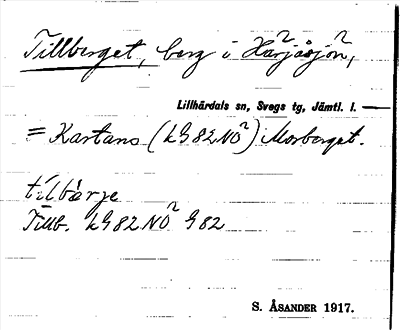 Tillberget, berg i Harjåsjön,
Lillhärdals sn, Svegs tg, Jämtl. l.
= Kartans (LG 82 NO²) Morberget.
tilbärje
Tillb. LG 82 NO² G 82
S. ÅSANDER 1917.